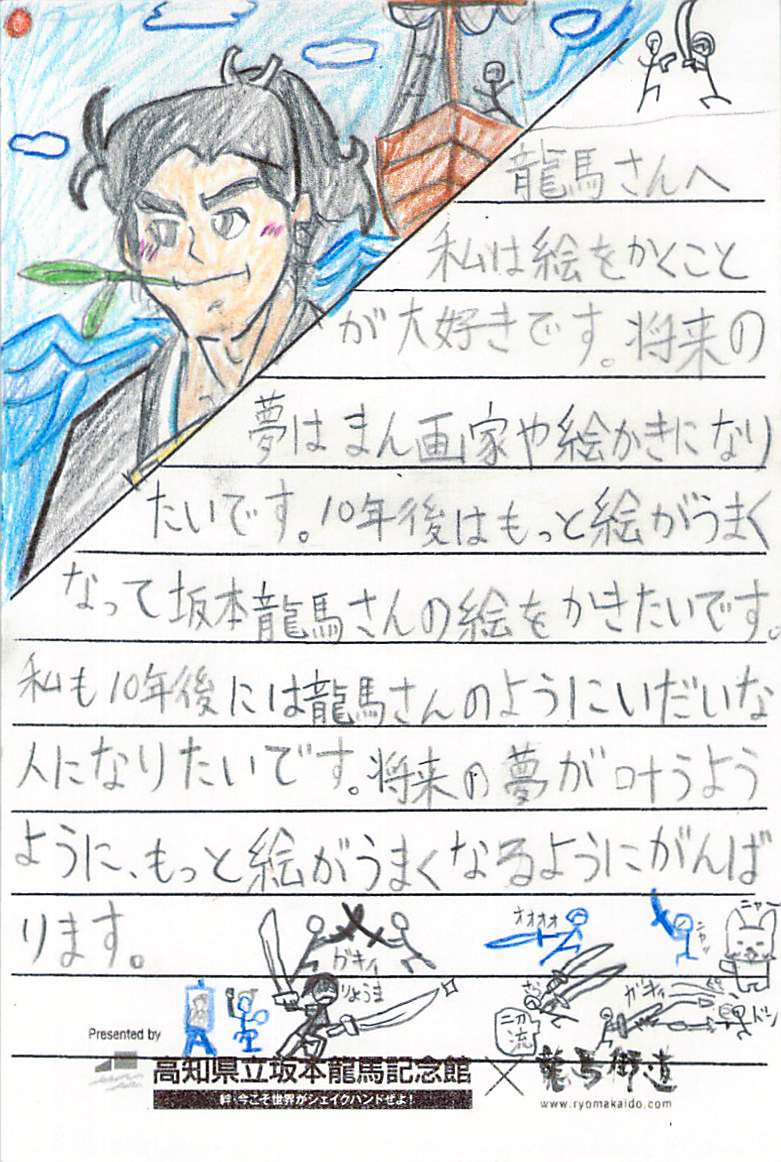 龍馬さんへ
私は絵をかくこと
が大好きです。将来の
夢はまん画家や絵かきになり
たいです。10年後はもっと絵がうまく
なって坂本龍馬さんの絵をかきたいです。
私も10年後には龍馬さんのようにいだいな
人になりたいです。将来の夢が叶うよう
ように、もっと絵がうまくなるようにがんば
ります。
ガキィ
オオオオ
ニャー
りょうま
ガキィ
二刀
流
Presented by
高知県立坂本龍馬記念館
×
龍馬街道
絆・今こそ世界がシェイクハンドぜよ!
www.ryomakaido.com